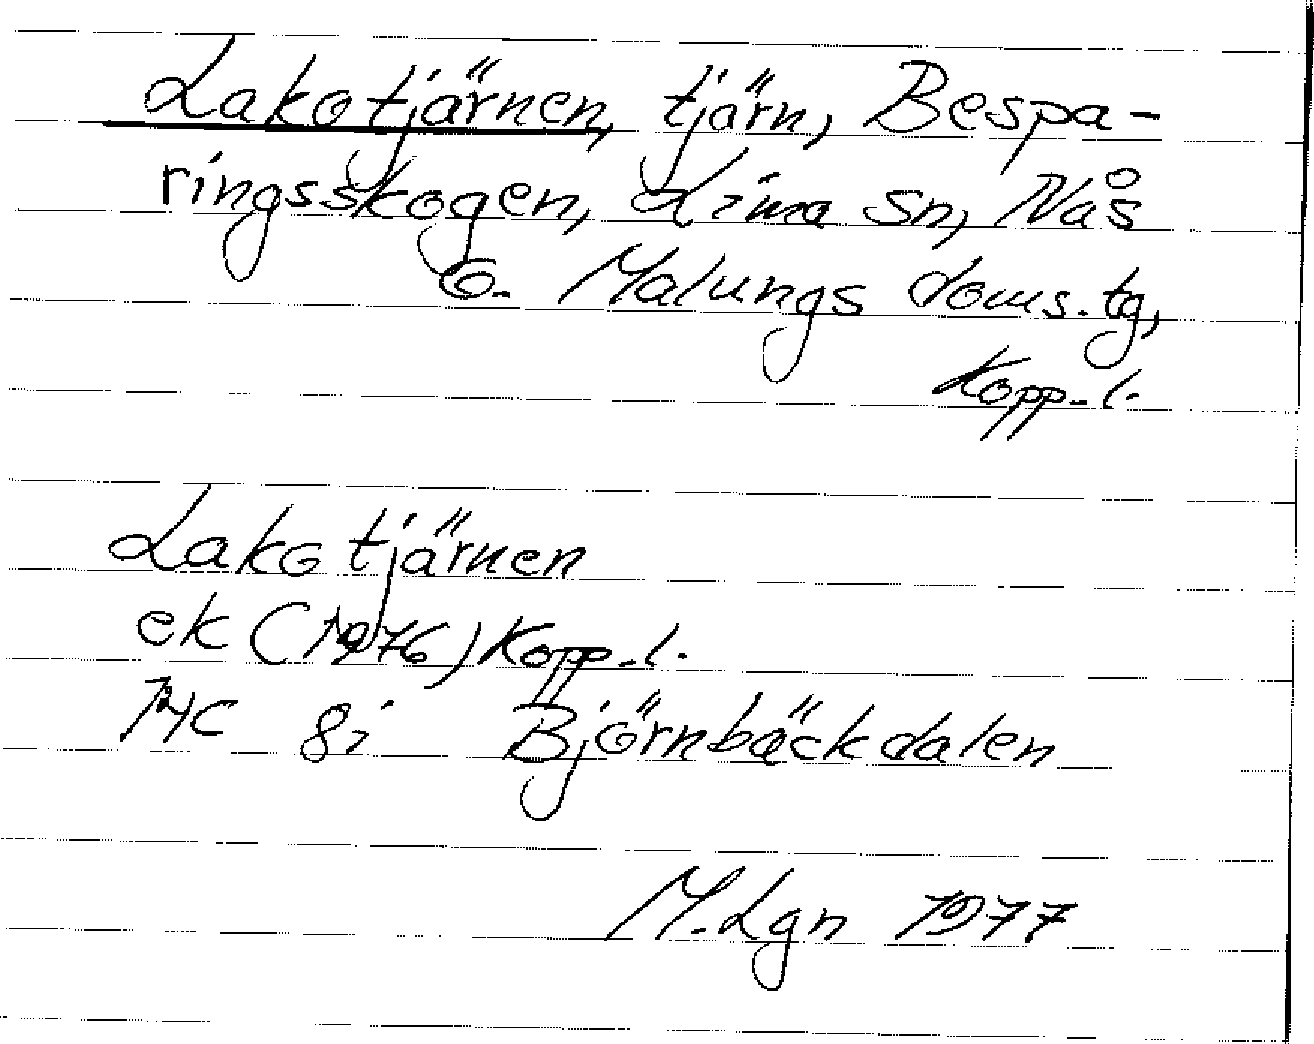 Lakotjärnen, tjärn, Bespa-
ringsskogen, Lima sn, Nås
o. Malungs doms.tg,
Kopp.l.
Lakotjärnen
ek (1976) Kopp.l.
14C 8i Björnbäckdalen
M.Lgn 1977